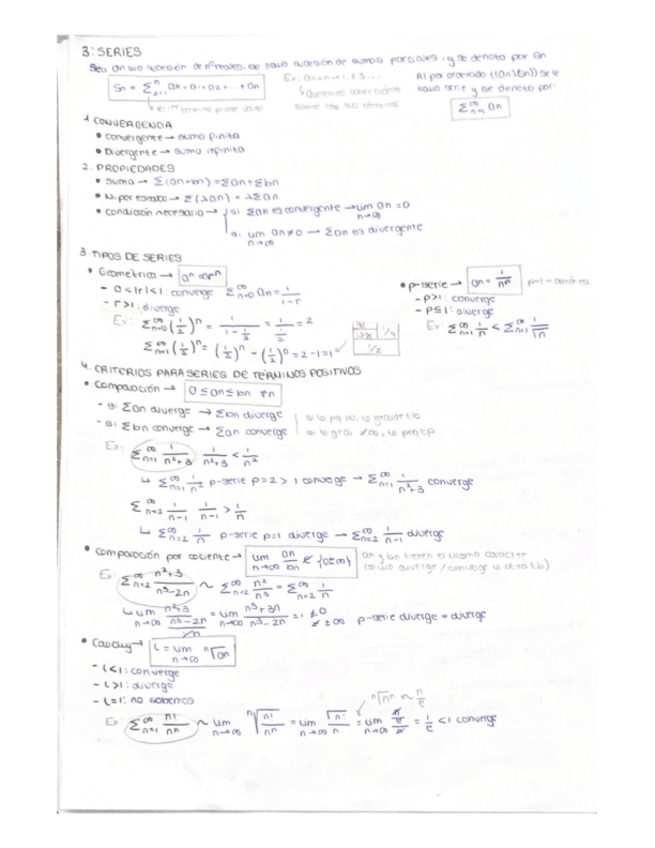 3: SERIES
Sea an una sucesión de nº reales, se llama sucesión de sumas parciales, y se denota por Sn
Sn = Σ an = a1 + a2 + ... + an
Al par ordenado ((an),(Sn)) se le
llama serie y se denota por:
Σ∞n=1 an
1. CONVERGENCIA
• Convergente → suma finita
• Divergente → suma infinita
2. PROPIEDADES
• Suma → Σ(an+bn) = Σan + Σbn
• N. por escalar → Σ(λan) = λΣan
• Condición necesaria → si Σan es convergente → lim n→∞ an = 0
si lim n→∞ an ≠ 0 → Σan es divergente
3. TIPOS DE SERIES
• Geométrica → an = rn
- 0<|r|<1: converge Σ∞n=0 an = 1/1-r
- r>1: diverge
Ex: Σ∞n=0 (1/2)^n = 1/(1-1/2) = 1/(1/2) = 2
Σ∞n=1 (1/2)^n = (1/2)^n - (1/2)^0 = 2-1 = 1
1/4
1/2
• p-serie →
- p>1: converge
- p≤1: diverge
Ex: Σ∞n=1 1/n < Σ∞n=1 1/√n
4. CRITERIOS PARA SERIES DE TÉRMINOS POSITIVOS
• Comparación → 0 ≤ an ≤ bn ∀n
- si Σan diverge → Σbn diverge
- si Σbn converge → Σan converge
Ex: Σ∞n=1 1/n²+3 1/n²+3 < 1/n²
↳ Σ∞n=1 1/n² p-serie p=2 > 1 converge → Σ∞n=1 1/n²+3 converge
Σ∞n=2 1/n-1 1/n-1 > 1/n
↳ Σ∞n=2 1/n p-serie p=1 diverge → Σ∞n=2 1/n-1 diverge
• Comparación por cociente → lim n→∞ an/bn ∉ {0,±∞} an y bn tienen el mismo carácter
(si uno diverge/converge la otra tb)
Ex: Σ∞n=2 n²+3/n³-2n ~ Σ∞n=2 n²/n³ = Σ∞n=2 1/n
↳ lim n→∞ (n²+3/n³-2n)/(1/n) = lim n→∞ n³+3n/n³-2n = 1 ≠0 ≠±∞ p-serie diverge = diverge
• Cauchy → L = lim n→∞ ⁿ√an
- L<1: converge
- L>1: diverge
- L=1: no sabemos
ⁿ√n! ~ n/e
Ex: Σ∞n=1 n!/nⁿ ~ lim n→∞ ⁿ√n!/nⁿ = lim n→∞ ⁿ√n!/n = lim n→∞ (n/e)/n = 1/e <1 converge